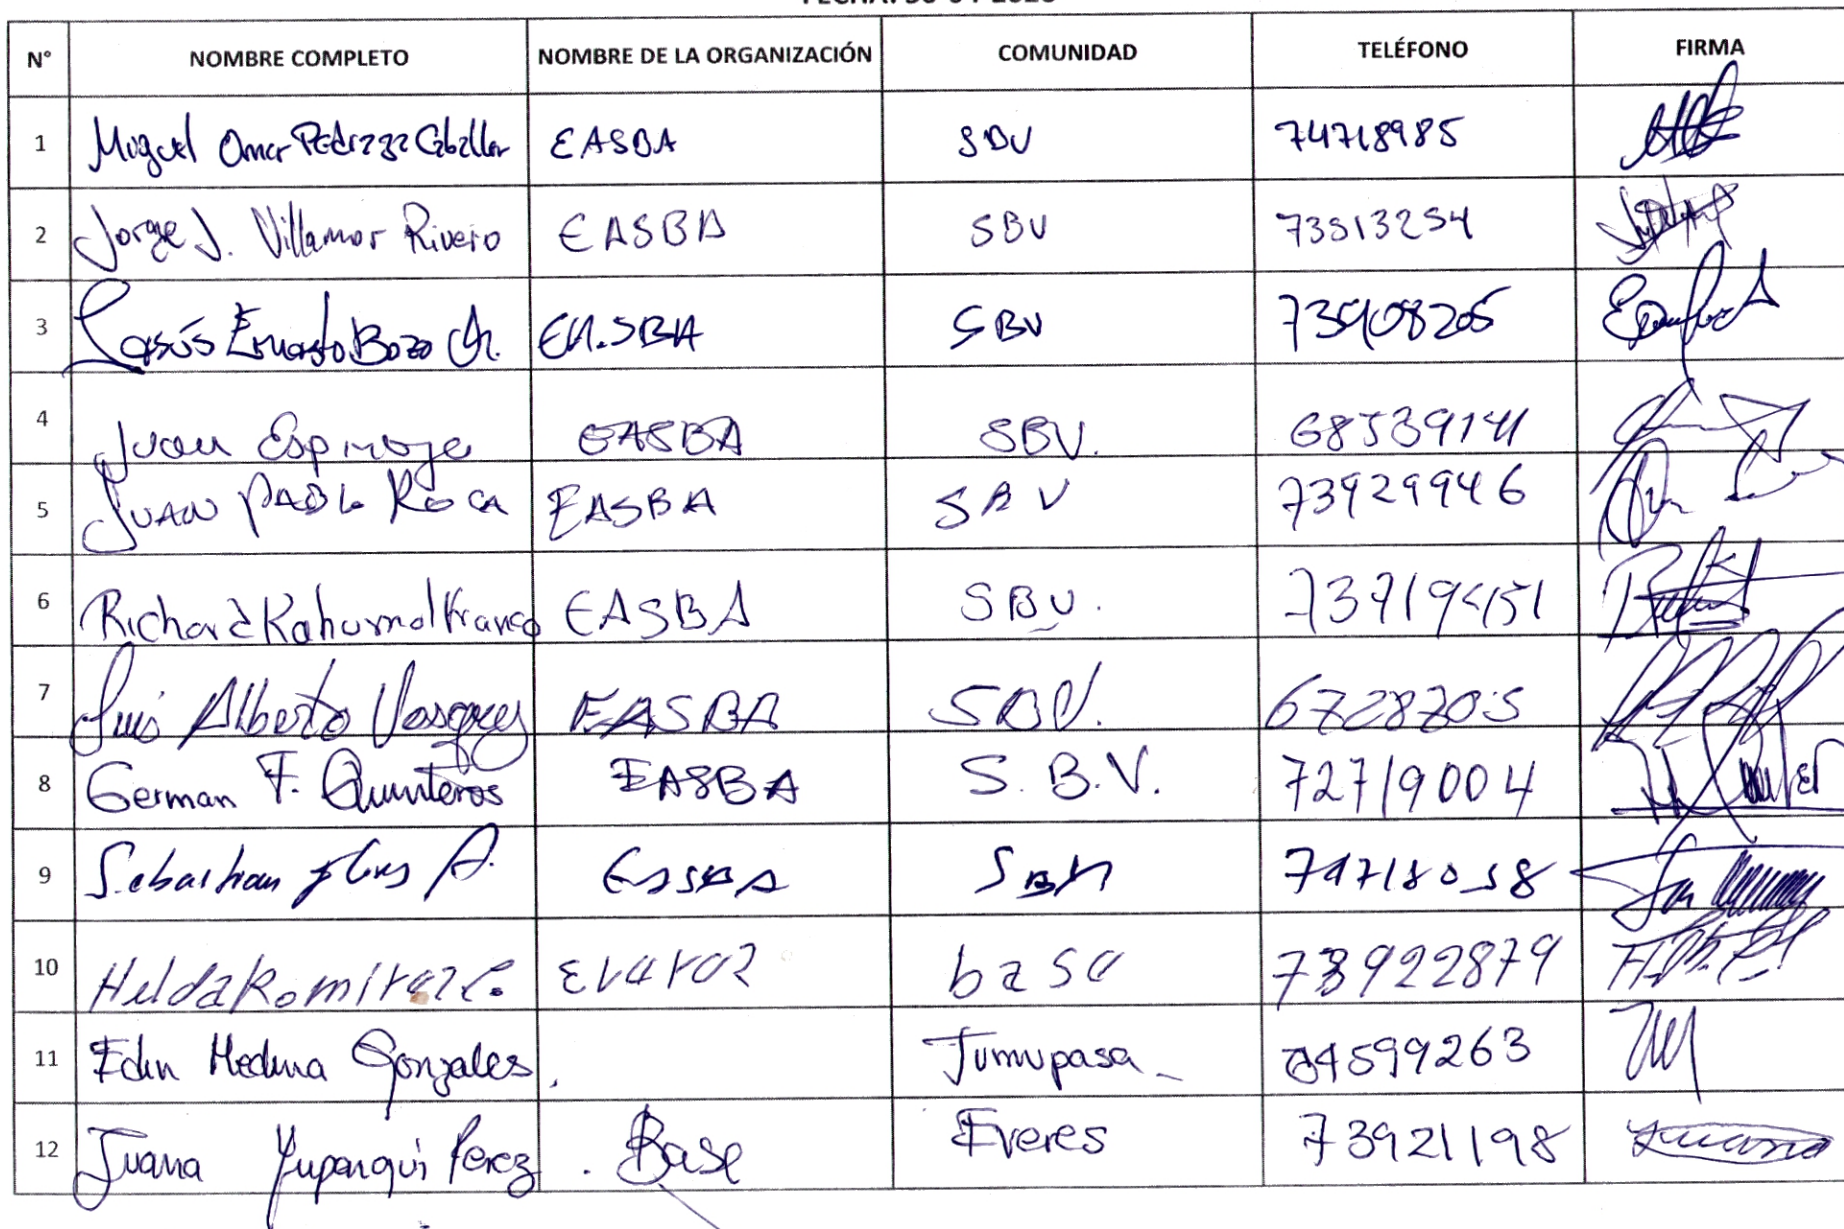 N° NOMBRE COMPLETO NOMBRE DE LA ORGANIZACIÓN COMUNIDAD TELÉFONO FIRMA
1 Miguel Omar Pedraza Caballer EASBA SBV 74718985
2 Jorge J. Villamor Rivero EASBA SBV 73513254
3 Jesús Ernesto Bozo Ch. EA.SBA SBV
4 Juan Espinoza EASBA SBV. 68539141
5 JUAN PABLO ROCA EASBA SBV 73929946
6 Richard Franco EASBA SBU. 73719451
7 Luis Alberto Vasquez EASBA SBV. 67287205
8 German F. Quinteros EASBA S.B.V. 72719004
9 Sebastian flores A. EASBA
10 base 73922879
11 Edin Medina Gonzales. Tumupasa 
12 Juana Yupanqui Perez. Base Everes 73921198